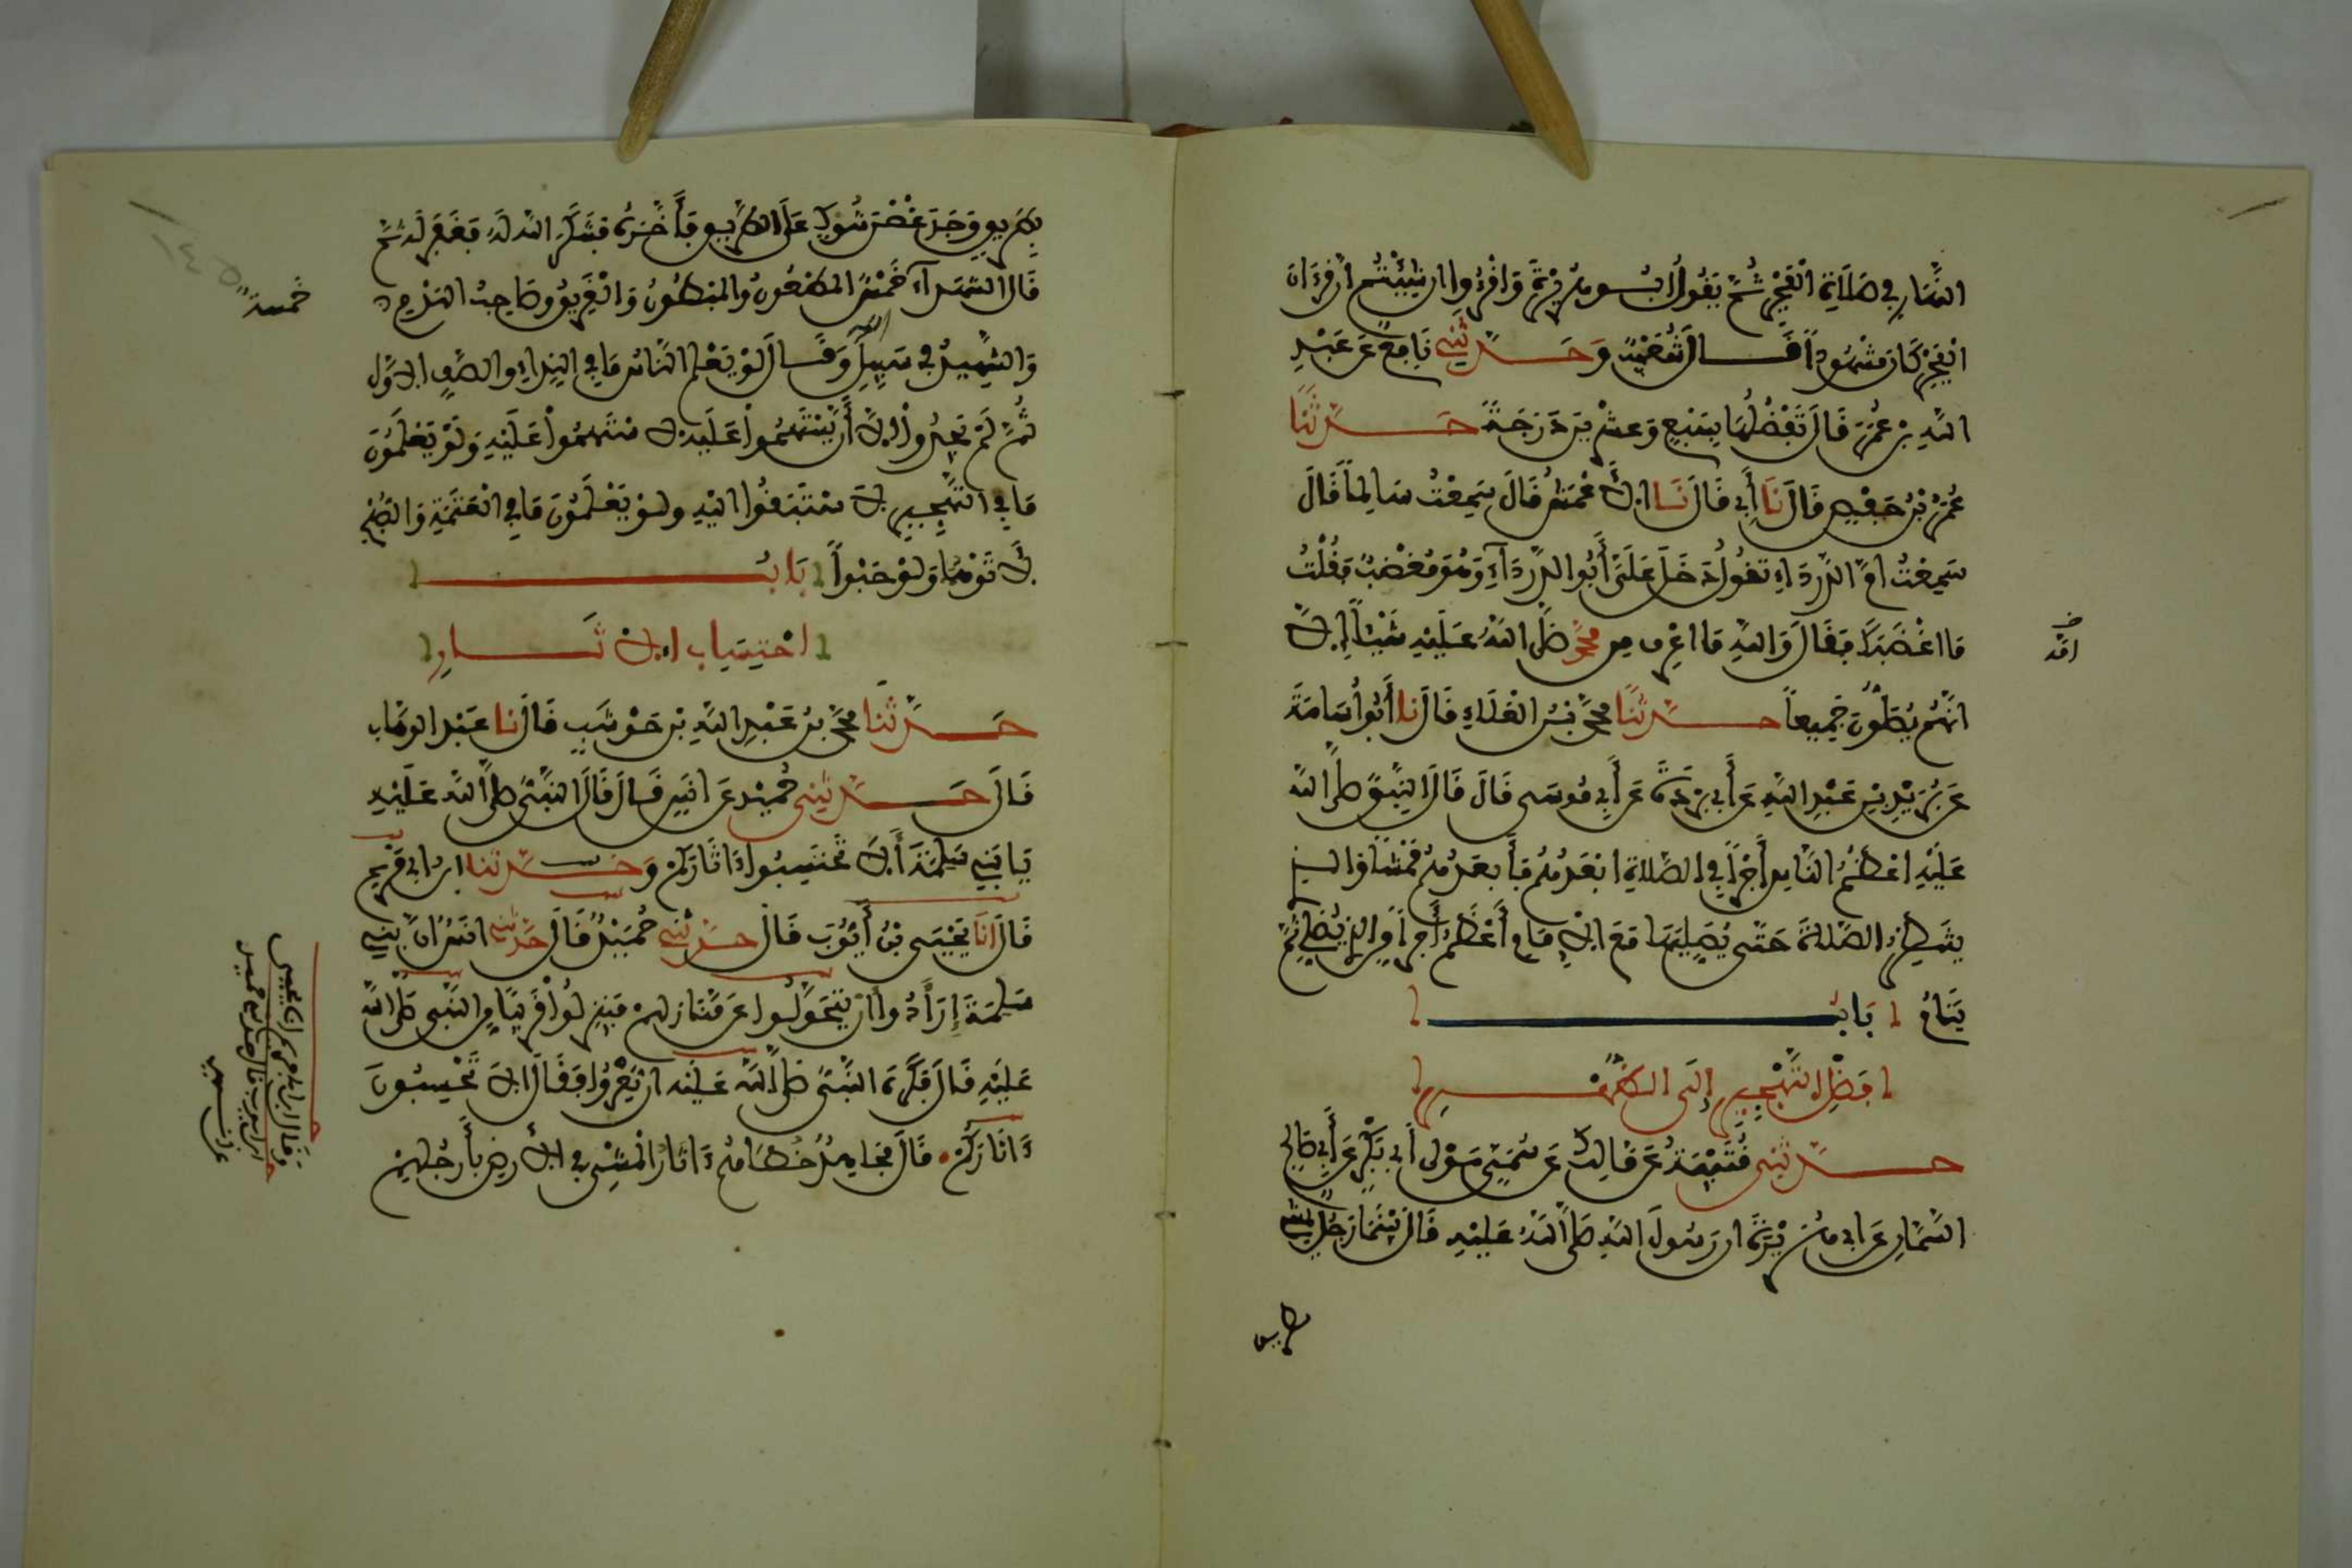 النَّهَارِ فِي صَلَاةِ الْفَجْرِ ثُمَّ يَقُولُ أَبُو هُرَيْرَةَ وَاقْرَءُوا ان شِيْتُمْ ان قُرْءَانَ
الْفَجْرِ كَانَ مَشْهُوداً قَالَ شُعَيْبٌ وَحَدَّثَنِي نَافِعٌ عَنْ عَبْدِ
اللهِ بْنِ عُمَرَ قَالَ تَفْضُلُهَا بِسَبْعٍ وَعِشْرِينَ دَرَجَةً حَدَّثَنَا
عُمَرُ بْنُ حَفْصٍ قَالَ نَا أَبِي قَالَ نَا الأَعْمَشُ قَالَ سَمِعْتُ سَالِماً قَالَ
سَمِعْتُ امَّ الدَّرْدَاءِ تَقُولُ دَخَلَ عَلَيَّ أَبُو الدَّرْدَآءِ وَهُوَ مُغْضَبٌ فَقُلْتُ
مَا اغْضَبَكَ فَقَالَ وَاللهِ مَا اعْرِف مِن مُحَمَّدٍ صَلَّى اللهُ عَلَيْهِ شَيْئاً إِلَّا
انَّهُمْ يُصَلُّونَ جَمِيعاً حَدَّثَنَا مُحَمَّدُ بْنُ الْعَلَاءِ قَالَ نا أَبُو أُسَامَةَ
عَنْ بُرَيْدِ بْنِ عَبْدِ اللهِ عَنْ أَبِي بُرْدَةَ عَنْ أَبِي مُوسَى قَالَ قَالَ النَّبِيُّ صَلَّى اللهُ
عَلَيْهِ اعْظَمُ النَّاسِ أَجْراً فِي الصَّلَاةِ ابْعَدُهُمْ فَأَبْعَدُهُمْ مَمْشًى وَالذِي
يَنتَظِرُ الصَّلَاةَ حَتَّى يُصَلِّيَهَا مَعَ الإِمَامِ أَعْظَمُ أَجْراً مِنَ الذِي يُصَلِّي ثُمَّ
يَنَامُ بَابُ
فَضْلِ التَّهْجِيرِ إِلَى الظُّهْرِ
حَدَّثَنِي قُتَيْبَةُ عَنْ مَالِكٍ عَنْ سُمَيٍّ مَوْلَى أَبِي بَكْرٍ عَنْ أَبِي صَالِحٍ
السَّمَّانِ عَنْ ابِي هُرَيْرَةَ ان رَسُولَ اللهِ صَلَّى اللهُ عَلَيْهِ قَالَ بَيْنَمَا رَجُلٌ يَمْشِي
بطريق
بِطَرِيقٍ وَجَدَ غُصْنَ شَوْكٍ عَلَى الطَّرِيقِ فَأَخَّرَهُ فَشَكَرَ اللهُ لَهُ فَغَفَرَ لَهُ ثُمَّ
قَالَ الشُّهَدَآءُ خَمْسٌ الْمَطْعُونُ وَالْمَبْطُونُ وَالْغَرِيقُ وَصَاحِبُ الْهَدْمِ
خمسة
وَالشَّهِيدُ فِي سَبِيلِ الله وَقَالَ لَوْ يَعْلَمُ النَّاسُ مَا فِي النِّدَاءِ وَالصَّفِّ الأَوَّلِ
ثُمَّ لَمْ يَجِدُوا إِلاَّ أَنْ يَسْتَهِمُوا عَلَيْهِ لاَسْتَهَمُوا عَلَيْهِ وَلَوْ يَعْلَمُونَ
مَا فِي التَّهْجِيرِ لاَسْتَبَقُوا الَيْهِ وَلَوْ يَعْلَمُونَ مَا فِي الْعَتَمَةِ وَالصُّبْحِ
لَأَتَوْهُمَا وَلَوْ حَبْواً بَابُ
احْتِسَابِ الآثَارِ
حَدَّثَنَا مُحَمَّدُ بْنُ عَبْدِ اللهِ بْنِ حَوْشَبٍ قَالَ نا عَبْدُ الوَهَّابِ
قَالَ حَدَّثَنِي حُمَيْدٌ عَنْ انَسٍ قَالَ قَالَ النَّبِيُّ صَلَّى اللهُ عَلَيْهِ
يَا بَنِي سَلِمَةَ أَلاَ تَحْتَسِبُونَ ءَاثَارَكُمْ وَحَدَّثَنَا ابن ابي مَرْيَم
قَالَ انَا يَحْيَى بْنُ أَيُّوبَ قَالَ حَدَّثَنِي حُمَيْدٌ قَالَ حَدَّثَنِي انَسٌ انَّ بَنِي
سَلِمَةَ أَرَادُوا أَنْ يَتَحَوَّلُوا عَنْ مَنَازِلِهِمْ فَيَنْزِلُوا قَرِيباً مِنَ النَّبِيِّ صَلَّى اللهُ
عَلَيْهِ قَالَ فَكَرِهَ النَّبِيُّ صَلَّى اللهُ عَلَيْهِ أَنْ يُعْرُوا فَقَالَ أَلاَ تَحْتَسِبُونَ
ءَاثَارَكُمْ قَالَ مُجَاهِدٌ خُطَاهُمْ ءَاثَارُ الْمَشْيِ فِي الأَرْضِ بِأَرْجُلِهِمْ
وَقَالَ ابن ابي مريم انا يحيى
ابن ايوب قال حدثني حميد
عن انس